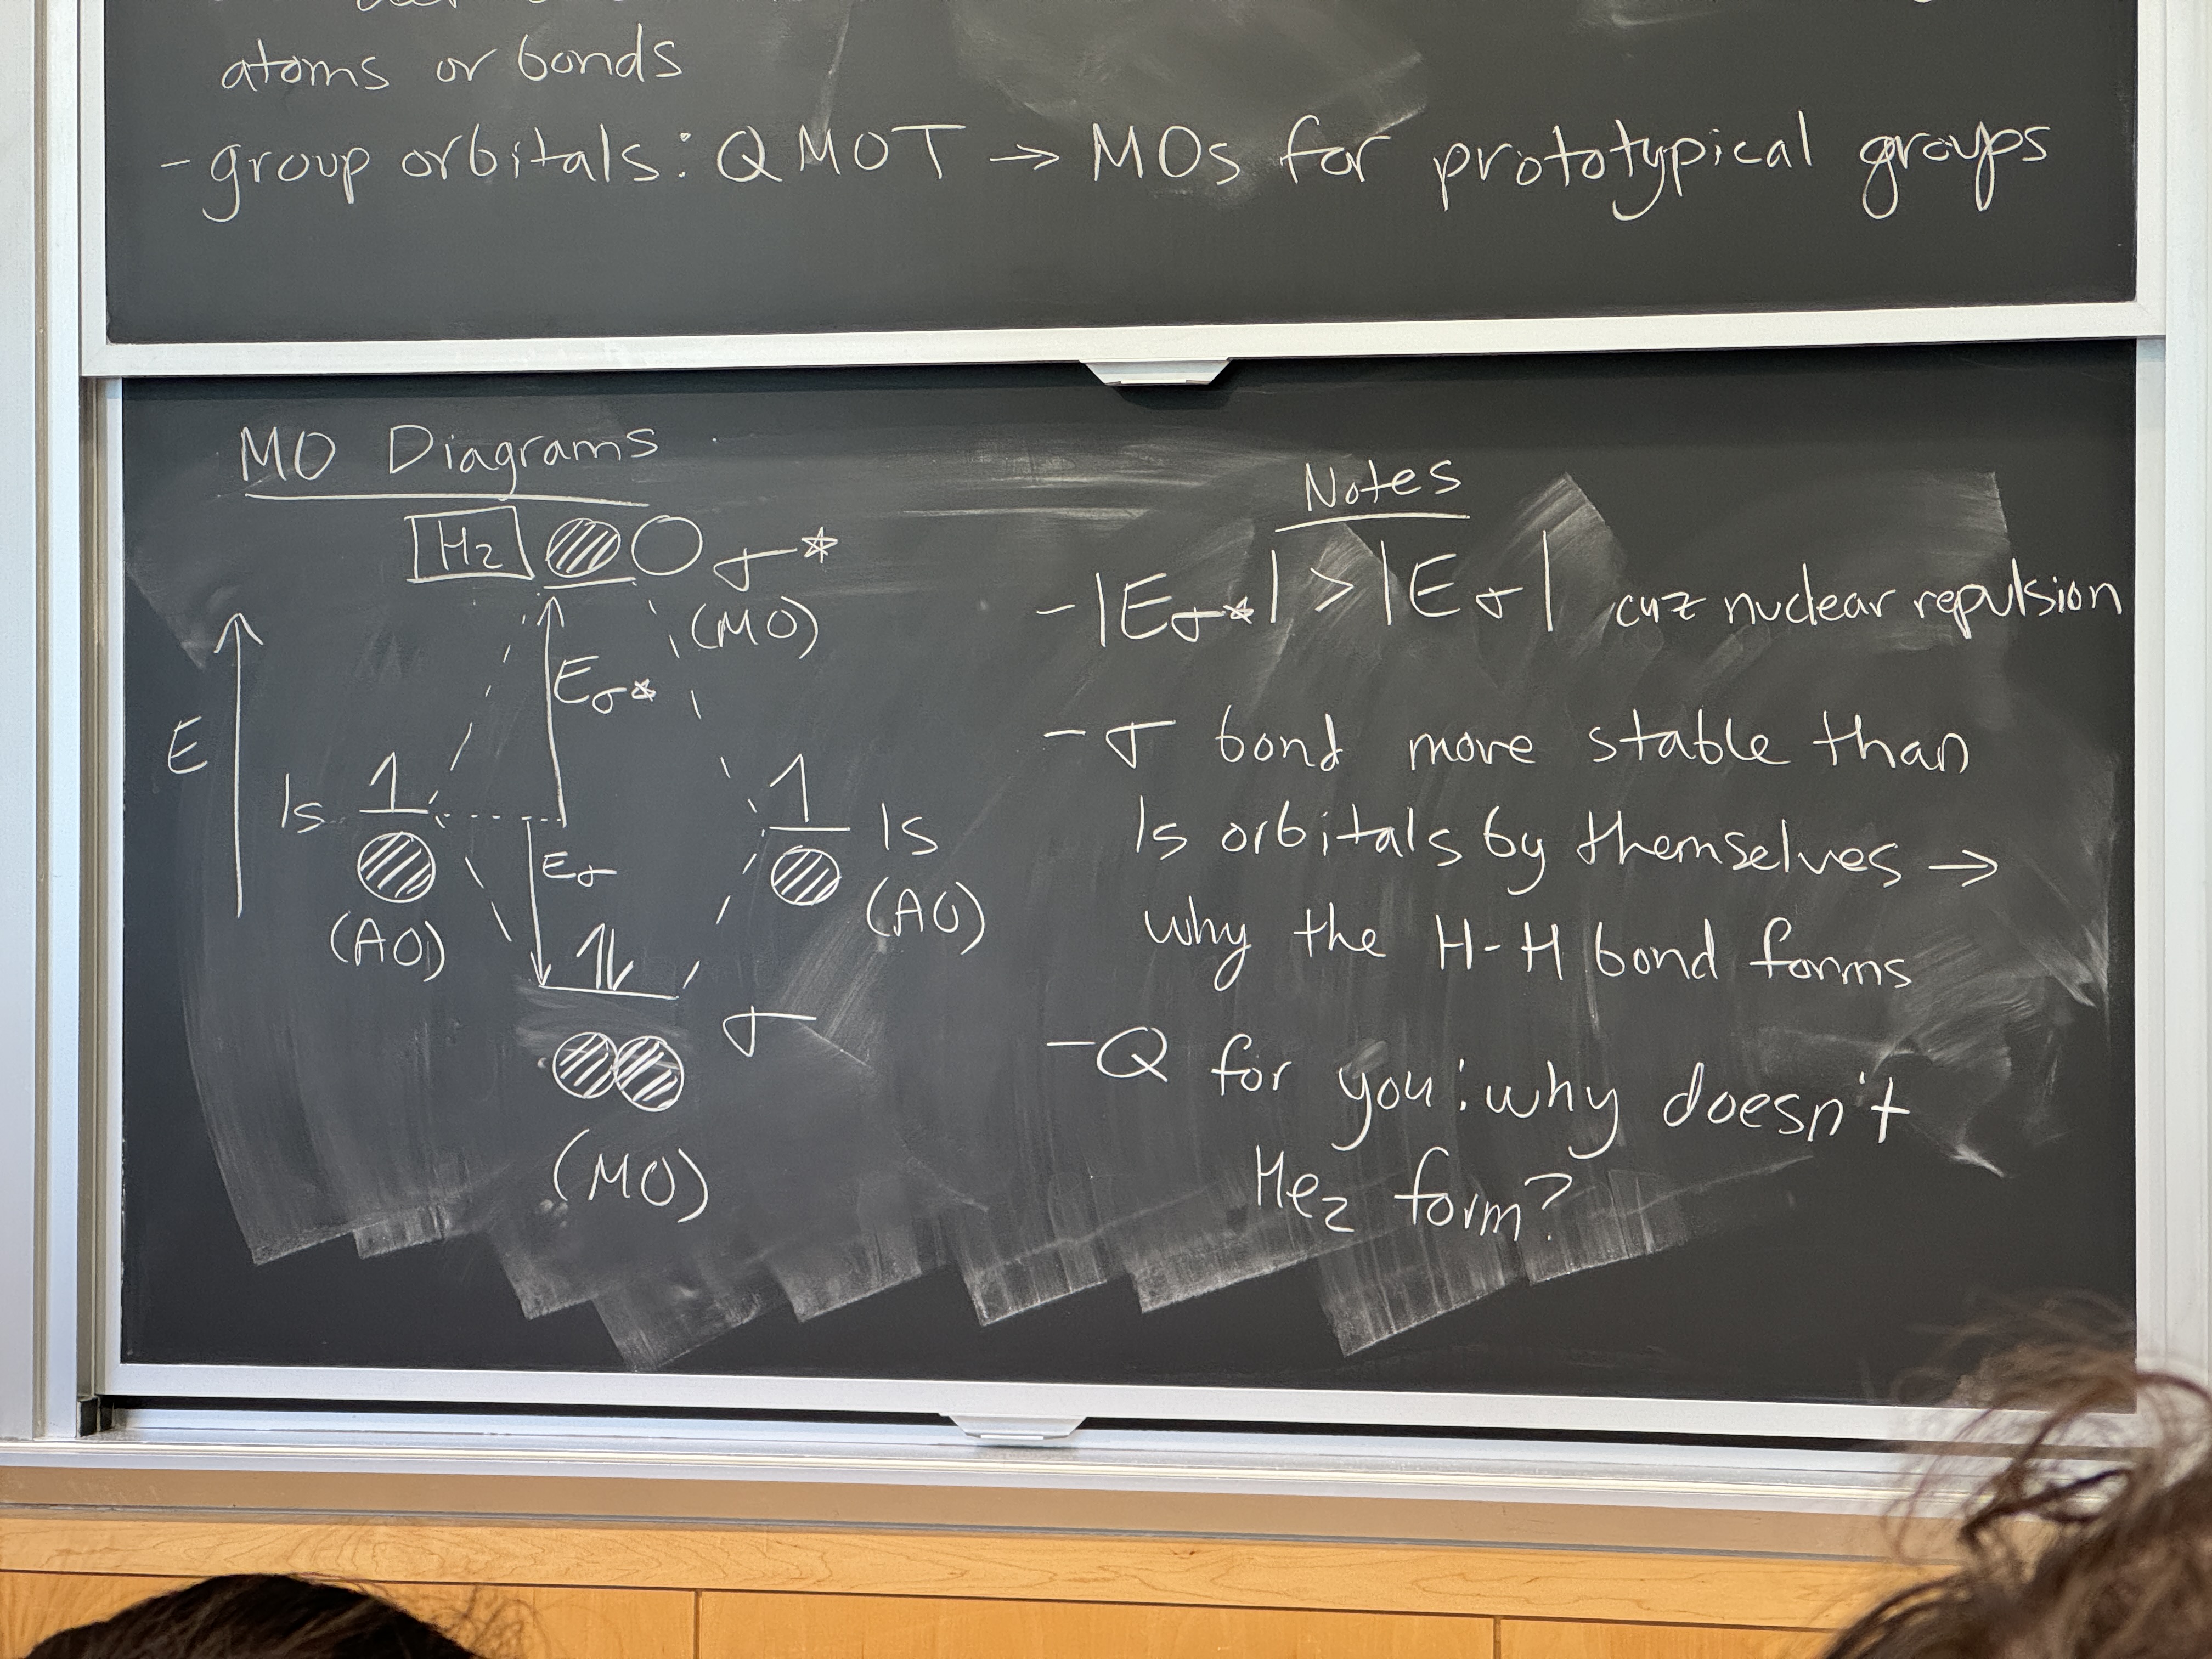 atoms or bonds
- group orbitals: QMOT → MOs for prototypical groups
MO Diagrams
H₂ σ*
(MO)
E
Eσ*
1s 1
1 1s
Eσ
(AO)
(AO)
1⇂
σ
(MO)
Notes
- |Eσ*| > |Eσ| cuz nuclear repulsion
- σ bond more stable than
1s orbitals by themselves →
why the H-H bond forms
- Q for you: why doesn't
He₂ form?